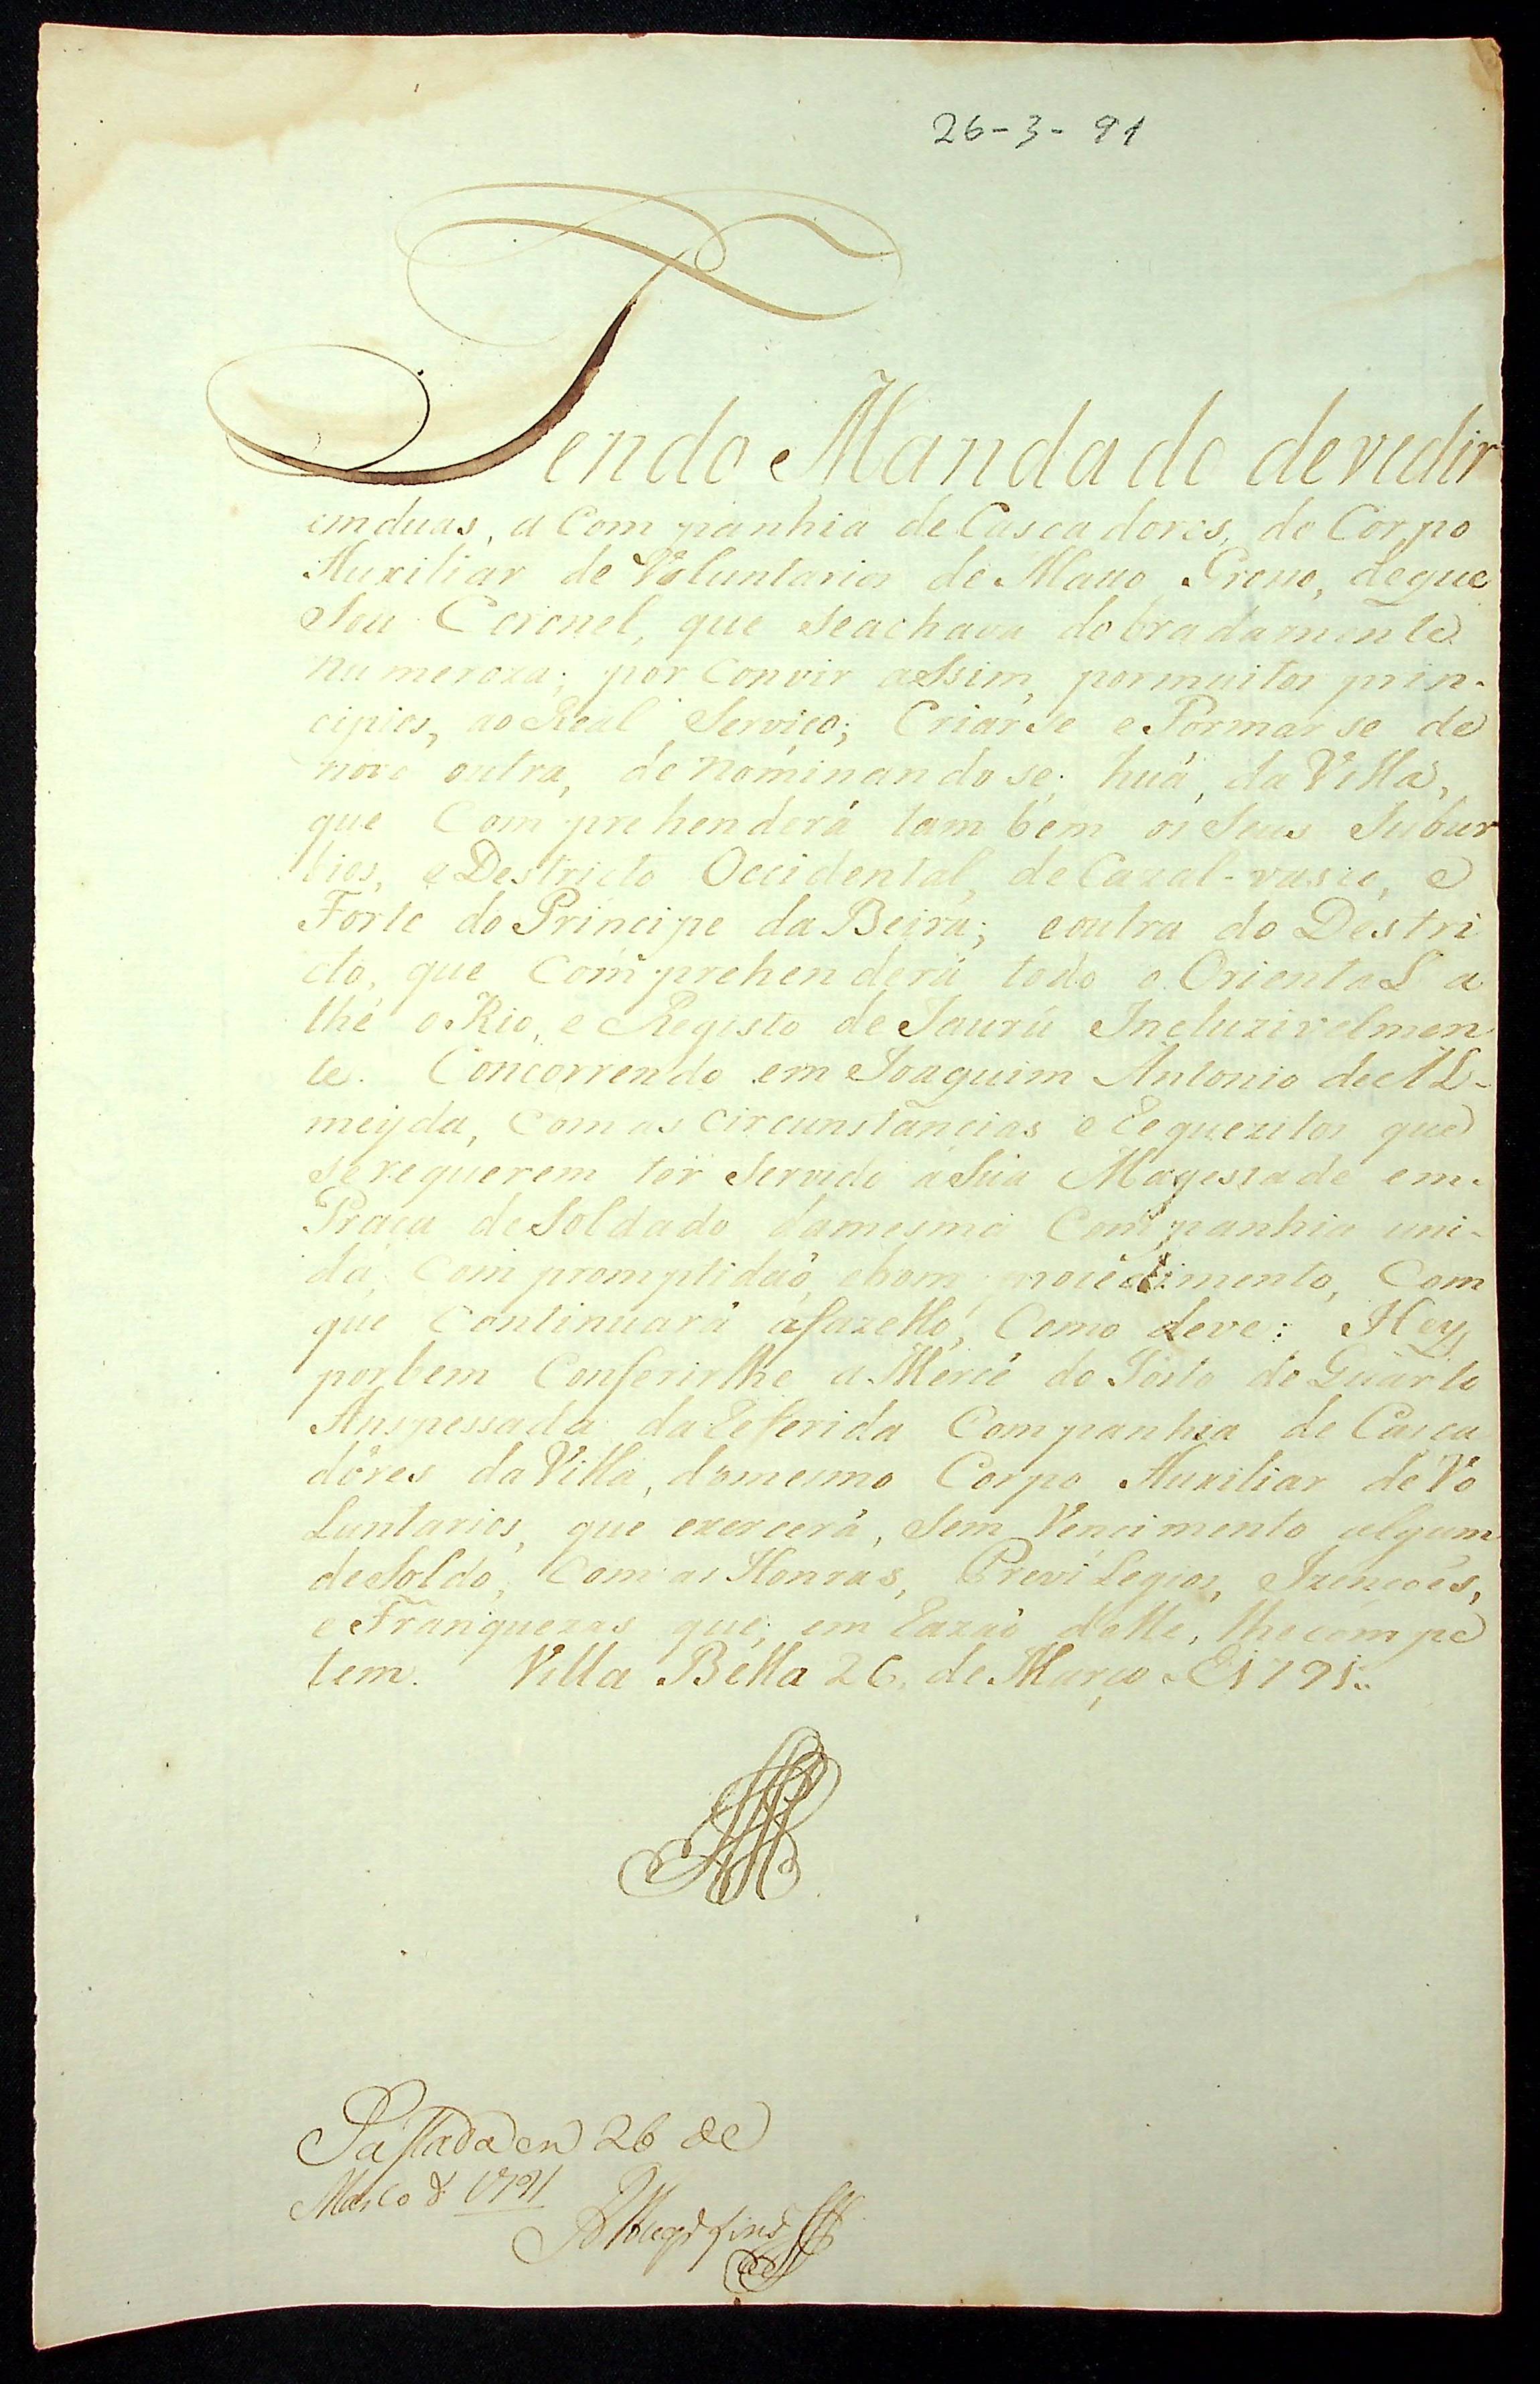 26-3-91
Tendo Mandado devedir
em duas, a Companhia de Cascadores, do Corpo
Auxiliar de Voluntarios de Matto Grosso, deque
Sou Coronel, que seachava dobradamente
numeroza; por convir assim, pormuitos prin-
cipios, ao Real Serviço; Criar se e Formar se de
novo outra, denominando se; huã, da Villa,
que Comprehenderá tambem os Seus Subur
bios, e Destricto Occidental, de Cazal-vasco, e
Forte do Principe da Beira; eoutra do Destri
cto, que Comprehenderá todo o Oriental a
thé o Rio, e Registo de Jaurú Incluzivelmen
te. Concorrendo em Joaquim Antonio de Al-
meyda, com as circunstancias e requezitos que
se requerem ter Servido á Sua Magestade em
Praça de Soldado damesma Companhia uni-
da, Com promptidão, ebom procedimento, Com
que Continuará áfazello, Como deve: Hey
porbem Conferirlhe a Mercê do Posto de Quarto
Anspessada da referida Companhia de Casca
dôres da Villa, domesmo Corpo Auxiliar de Vo
luntarios, que exercerá, Sem Vencimento algum
de Soldo, Com as Honras, Previlegios, Izençoẽs,
e Franquezas que, em razão delle, lhe compe
tem. Villa Bella 26, de Março de 1791.
Passada em 26 de
Março de 1791